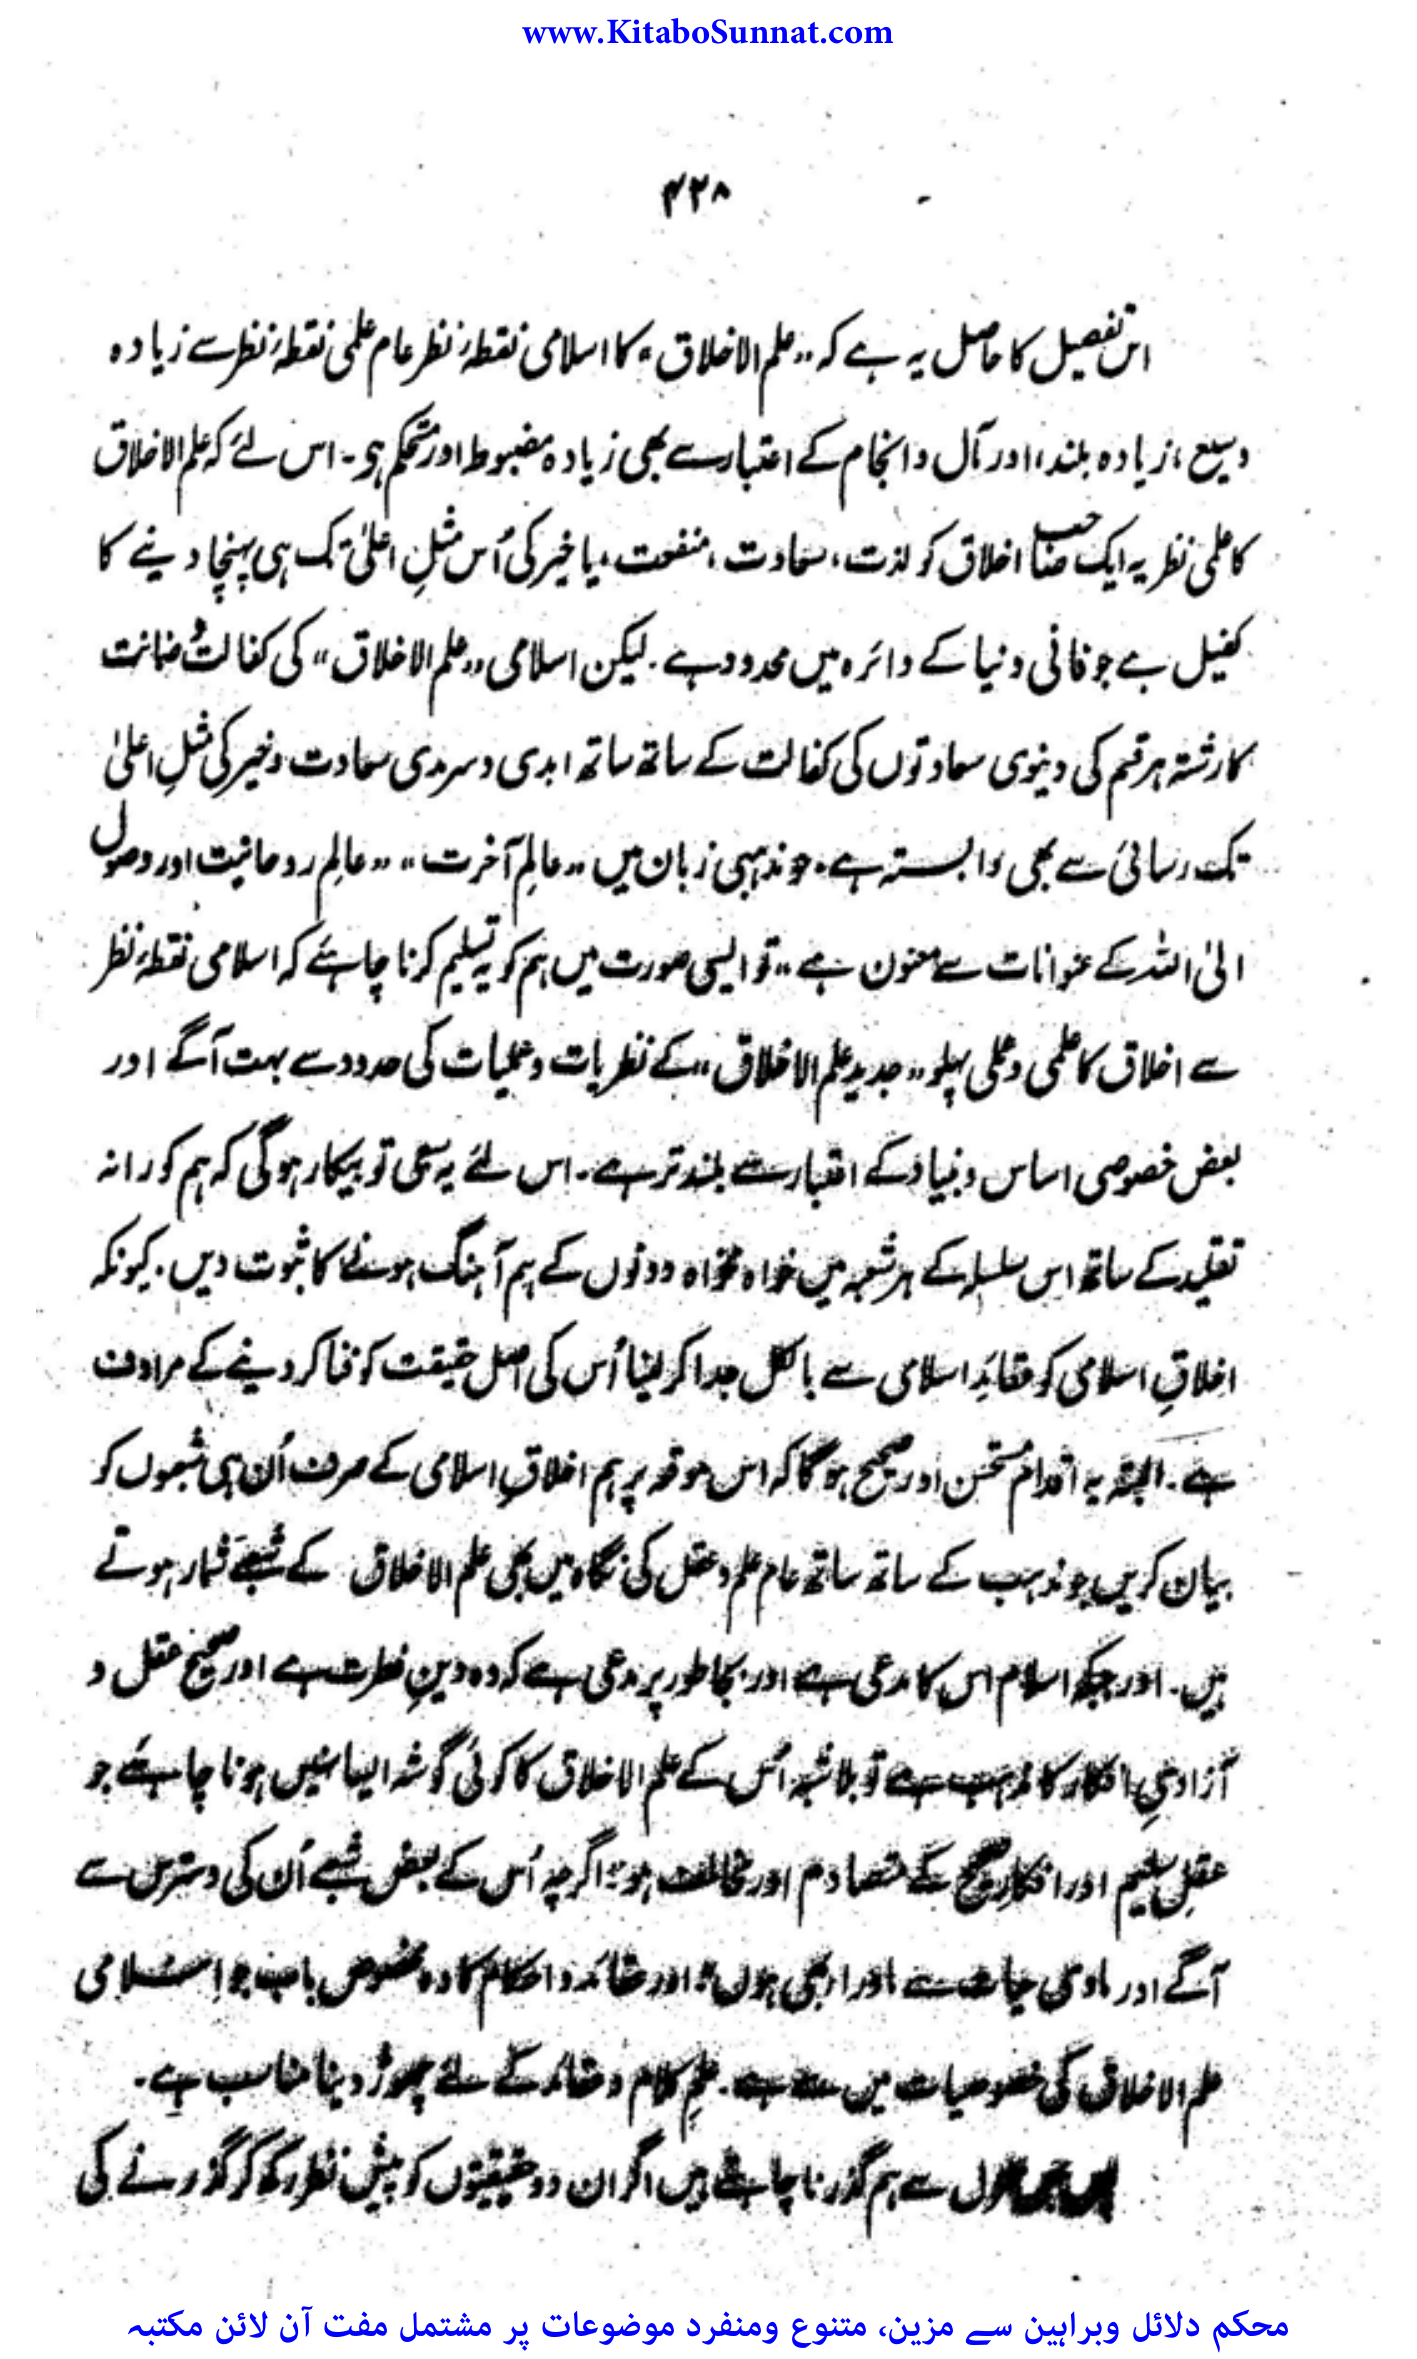 www.KitaboSunnat.com
۴۲۸
اس تفصیل کا حاصل یہ ہے کہ „علم الاخلاق“ کا اسلامی نقطۂ نظر عام علمی نقطۂ نظر سے زیادہ
وسیع، زیادہ بلند، اور مآل و انجام کے اعتبار سے بھی زیادہ مضبوط اور مستحکم ہی۔ اس لئے کہ علم الاخلاق
کا علمی نظریہ ایک صاحب اخلاق کو لذت، سعادت، منفعت، یا خیر کی اُس مثلِ اعلیٰ تک ہی پہنچا دینے کا
کفیل ہے جو فانی دنیا کے دائرہ میں محدود ہے۔ لیکن اسلامی „علم الاخلاق“ کی کفالت و ضمانت
کا رشتہ ہر قسم کی دنیوی سعادتوں کی کفالت کے ساتھ ساتھ ابدی و سرمدی سعادت و خیر کی مثلِ اعلیٰ
تک رسائی سے بھی وابستہ ہے۔ جو مذہبی زبان میں „عالمِ آخرت“ „عالمِ روحانیت اور وصول
الی اللہ کے عنوانات سے معنون ہے „ تو ایسی صورت میں ہم کو یہ تسلیم کرنا چاہئے کہ اسلامی نقطۂ نظر
سے اخلاق کا علمی و عملی پہلو „جدید علم الاخلاق“ کے نظریات و عملیات کی حدود سے بہت آگے اور
بعض خصوصی اساس و بنیاد کے اعتبار سے بلند تر ہے۔ اس لئے یہ سعی تو بیکار ہو گی کہ ہم کورانہ
تقلید کے ساتھ اس سلسلہ کے ہر شعبہ میں خواہ مخواہ دونوں کے ہم آہنگ ہونے کا ثبوت دیں۔ کیونکہ
اخلاقِ اسلامی کو عقائدِ اسلامی سے بالکل جدا کر لینا اُس کی اصل حقیقت کو فنا کر دینے کے مرادف
ہے۔ البتہ یہ اقدام مستحسن اور صحیح ہو گا کہ اس موقعہ پر ہم اخلاقِ اسلامی کے صرف اُن ہی شعبوں کو
بیان کریں جو مذہب کے ساتھ ساتھ عام علم و عقل کی نگاہ میں بھی علم الاخلاق کے شعبے شمار ہوتے
ہیں۔ اور جبکہ اسلام اس کا مدعی ہے اور بجا طور پر مدعی ہے کہ وہ دینِ فطرت ہے اور صحیح عقل و
آزادیِ افکار کا مذہب ہے تو بلا شبہ اُس کے علم الاخلاق کا کوئی گوشہ ایسا نہیں ہونا چاہئے جو
عقلِ سلیم اور افکارِ صحیح کے متصادم اور مخالف ہو؛ اگرچہ اُس کے بعض شعبے اُن کی دسترس سے
آگے اور مادی حیات سے ماوراء بھی ہوں؛ اور عقائد و احکام کا وہ مخصوص باب جو اسلامی
علم الاخلاق کی خصوصیات میں سے ہے۔ علمِ کلام و عقائد کے لئے چھوڑ دینا مناسب ہے۔
سے ہم گذرنا چاہتے ہیں اگر ان دو حقیقتوں کو پیشِ نظر رکھ کر گذرنے کی
محکم دلائل وبراہین سے مزین، متنوع ومنفرد موضوعات پر مشتمل مفت آن لائن مکتبہ